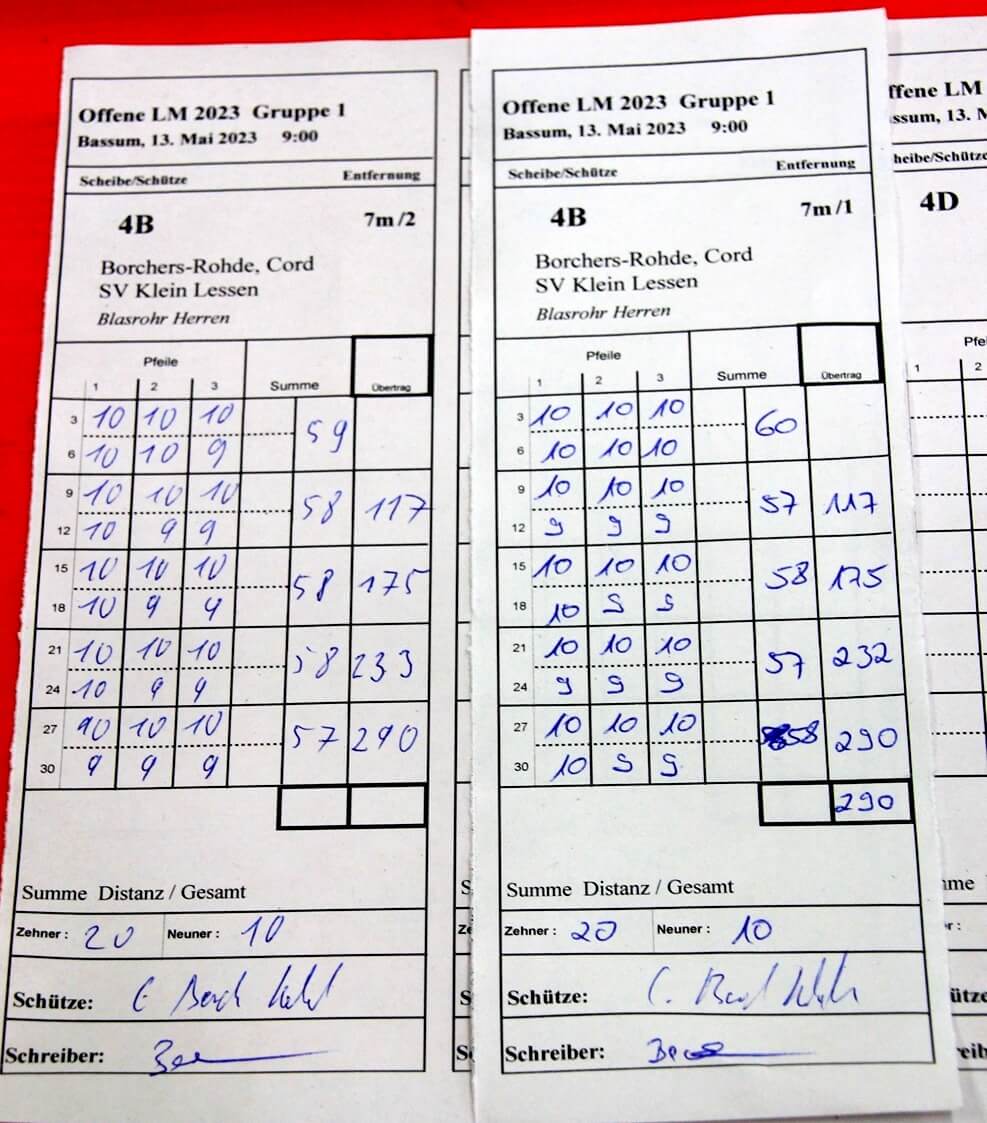 Offene LM 2023 Gruppe 1
Bassum, 13. Mai 2023 9:00
Scheibe/Schütze Entfernung
4B 7m /2
Borchers-Rohde, Cord
SV Klein Lessen
Blasrohr Herren
Pfeile
1 2 3 Summe Übertrag
3 10 10 10
59
6 10 10 9
9 10 10 10
58 117
12 10 9 9
15 10 10 10
58 175
18 10 9 9
21 10 10 10
58 233
24 10 9 9
27 10 10 10
57 290
30 9 9 9
Summe Distanz / Gesamt
Zehner : 20 Neuner : 10
Schütze:
Schreiber:
Offene LM 2023 Gruppe 1
Bassum, 13. Mai 2023 9:00
Scheibe/Schütze Entfernung
4B 7m /1
Borchers-Rohde, Cord
SV Klein Lessen
Blasrohr Herren
Pfeile
1 2 3 Summe Übertrag
3 10 10 10
60
6 10 10 10
9 10 10 10
57 117
12 9 9 9
15 10 10 10
58 175
18 10 9 9
21 10 10 10
57 232
24 9 9 9
27 10 10 10
58 290
30 10 9 9
290
Summe Distanz / Gesamt
Zehner : 20 Neuner : 10
Schütze:
Schreiber:
ffene LM
ssum, 13. M
heibe/Schütze
4D
Pfei
1 2